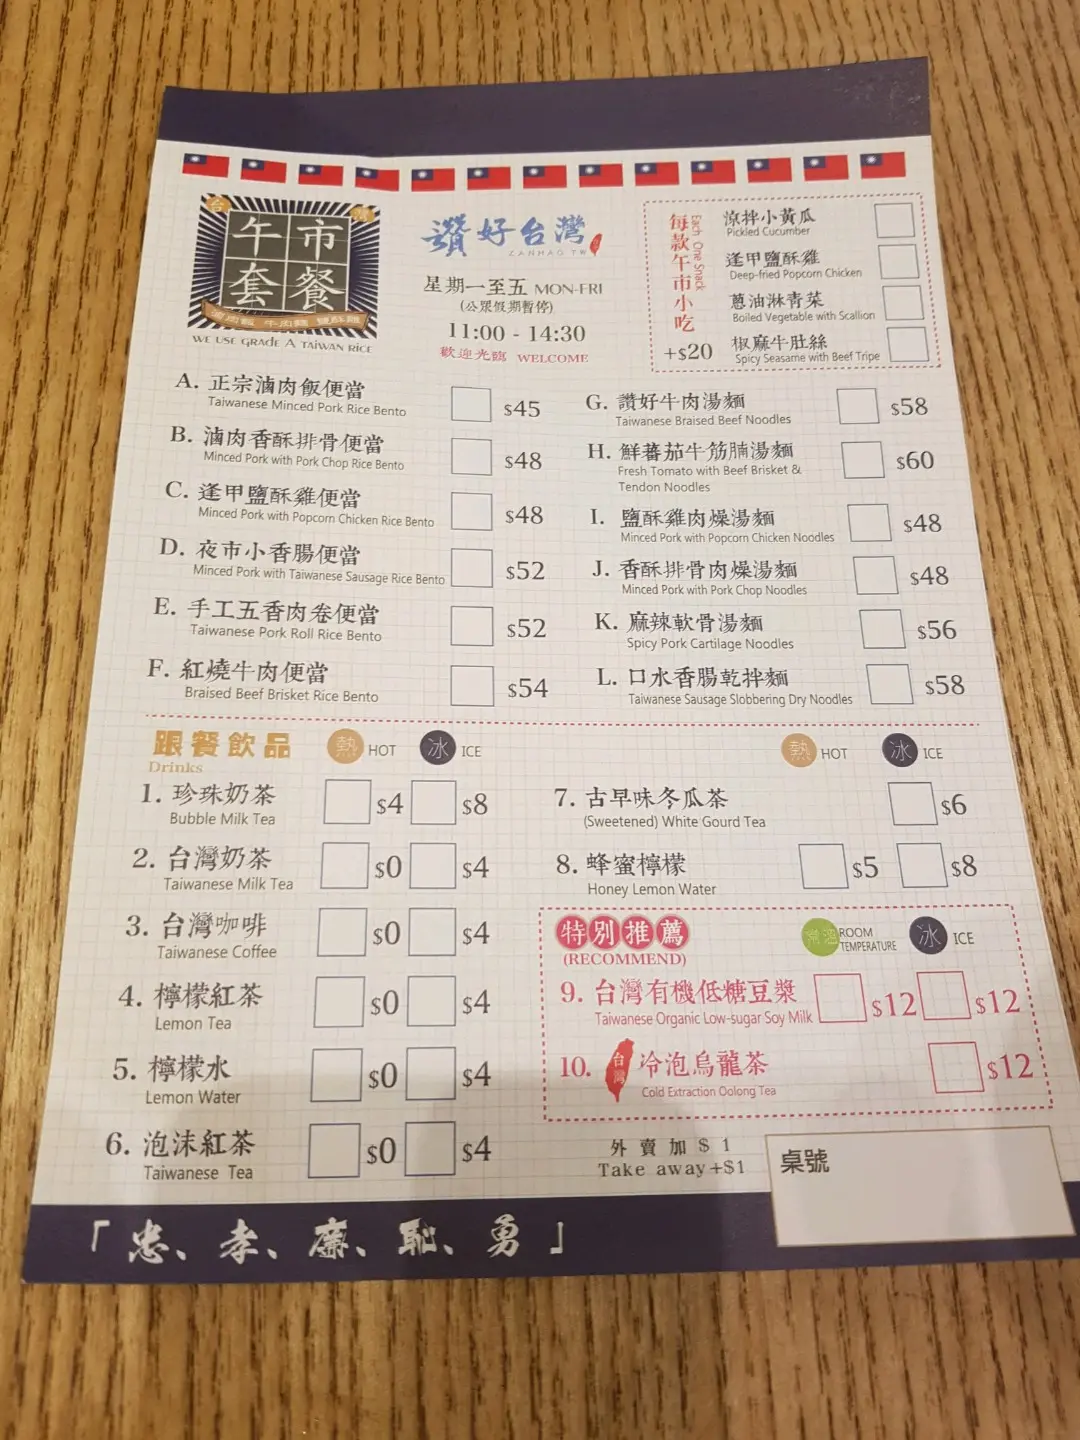 台灣
午市
套餐
滷肉飯 牛肉麵 鹽酥雞
WE USE GRADE A TAIWAN RICE
讚好台灣
ZANHAO TW
星期一至五 MON-FRI
(公眾假期暫停)
11:00 - 14:30
歡迎光臨 WELCOME
每款午市小吃
Each One Snack
+$20
涼拌小黃瓜
Pickled Cucumber
逢甲鹽酥雞
Deep-fried Popcorn Chicken
蔥油淋青菜
Boiled Vegetable with Scallion
椒麻牛肚絲
Spicy Seasame with Beef Tripe
A. 正宗滷肉飯便當 $45
Taiwanese Minced Pork Rice Bento
B. 滷肉香酥排骨便當 $48
Minced Pork with Pork Chop Rice Bento
C. 逢甲鹽酥雞便當 $48
Minced Pork with Popcorn Chicken Rice Bento
D. 夜市小香腸便當 $52
Minced Pork with Taiwanese Sausage Rice Bento
E. 手工五香肉卷便當 $52
Taiwanese Pork Roll Rice Bento
F. 紅燒牛肉便當 $54
Braised Beef Brisket Rice Bento
G. 讚好牛肉湯麵 $58
Taiwanese Braised Beef Noodles
H. 鮮蕃茄牛筋腩湯麵 $60
Fresh Tomato with Beef Brisket &
Tendon Noodles
I. 鹽酥雞肉燥湯麵 $48
Minced Pork with Popcorn Chicken Noodles
J. 香酥排骨肉燥湯麵 $48
Minced Pork with Pork Chop Noodles
K. 麻辣軟骨湯麵 $56
Spicy Pork Cartilage Noodles
L. 口水香腸乾拌麵 $58
Taiwanese Sausage Slobbering Dry Noodles
跟餐飲品 熱 HOT 冰 ICE
Drinks
1. 珍珠奶茶 $4 $8
Bubble Milk Tea
2. 台灣奶茶 $0 $4
Taiwanese Milk Tea
3. 台灣咖啡 $0 $4
Taiwanese Coffee
4. 檸檬紅茶 $0 $4
Lemon Tea
5. 檸檬水 $0 $4
Lemon Water
6. 泡沫紅茶 $0 $4
Taiwanese Tea
熱 HOT 冰 ICE
7. 古早味冬瓜茶 $6
(Sweetened) White Gourd Tea
8. 蜂蜜檸檬 $5 $8
Honey Lemon Water
特別推薦 常溫 ROOM TEMPERATURE 冰 ICE
(RECOMMEND)
9. 台灣有機低糖豆漿 $12 $12
Taiwanese Organic Low-sugar Soy Milk
10. 台灣 冷泡烏龍茶 $12
Cold Extraction Oolong Tea
外賣加 $1
Take away +$1
桌號
「忠、孝、廉、恥、勇」